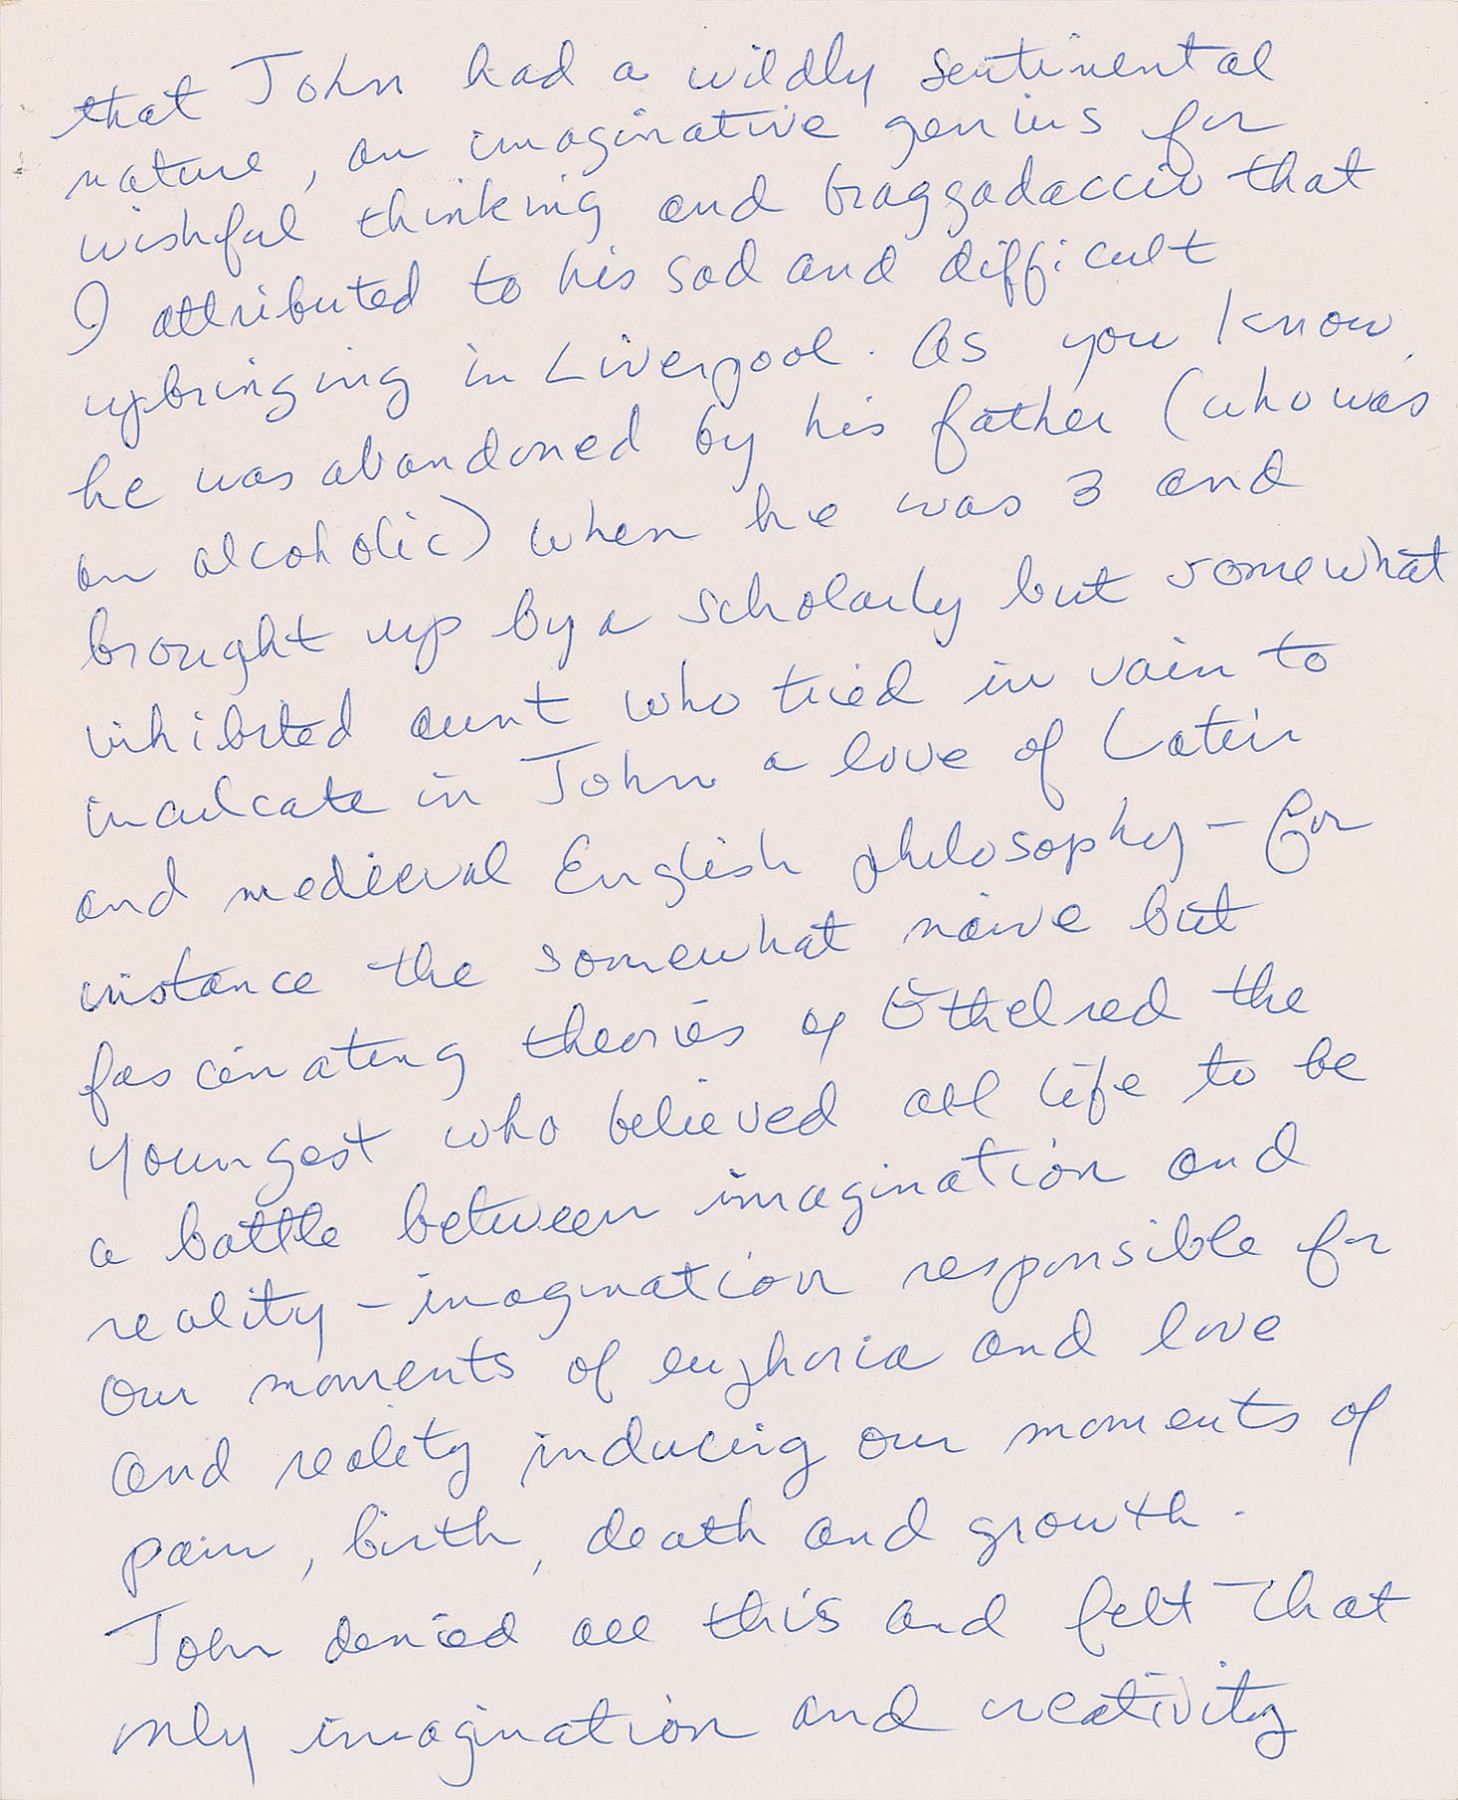 that John had a wildly sentimental
nature, an imaginative genius for
wishful thinking and braggadaccio that
I attributed to his sad and difficult
upbringing in Liverpool. As you know,
he was abandoned by his father (who was
an alcoholic) when he was 3 and
brought up by a scholarly but somewhat
inhibited aunt who tried in vain to
inculcate in John a love of Latin
and medieval English philosophy – for
instance the somewhat naive but
fascinating theories of Othelred the
Youngest who believed all life to be
a battle between imagination and
reality – imagination responsible for
our moments of euphoria and love
and reality inducing our moments of
pain, birth, death and growth.
John denied all this and felt that
only imagination and creativity